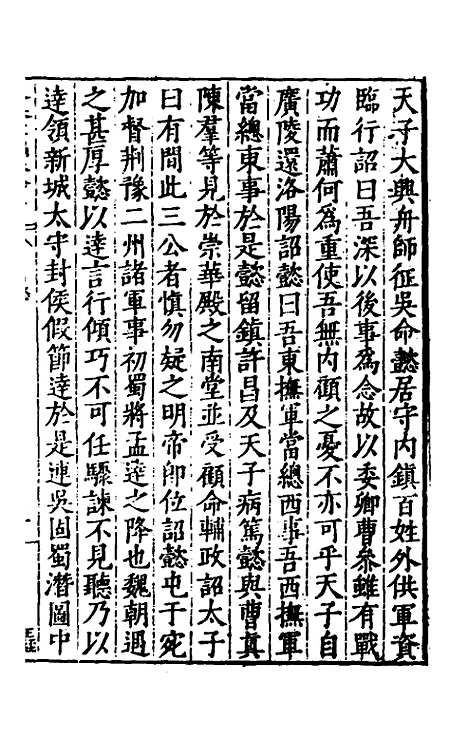 天子大興舟師征吳命懿居守內鎮百姓外供軍資
臨行詔曰吾深以後事爲念故以委卿曹參雖有戰
功而蕭何爲重使吾無內顧之憂不亦可乎天子自
廣陵還洛陽詔懿曰吾東撫軍當總西事吾西撫軍
當總東事於是懿留鎮許昌及天子病篤懿與曹真
陳羣等見於崇華殿之南堂並受顧命輔政詔太子
曰有間此三公者慎勿疑之明帝卽位詔懿屯于宛
加督荆豫二州諸軍事初蜀將孟達之降也魏朝遇
之甚厚懿以達言行傾巧不可任驟諫不見聽乃以
達領新城太守封侯假節達於是連吳固蜀潛圖中